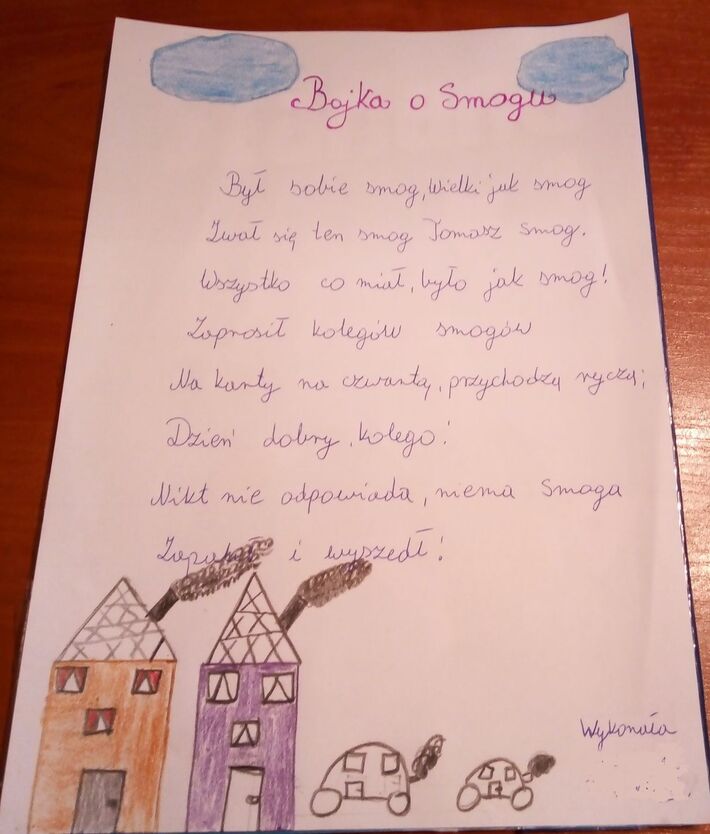 Bojka o Smogu
Był sobie smog, Wielki jak smog
Zwał się ten smog Tomasz Smog.
Wszystko co miał, było jak smog!
Zaprosił kolegów smogów
Na karty na czwartą, przychodzą ryczą;
Dzień dobry, kolego!
Nikt nie odpowiada, niema smoga
i wyszedł!
Wykonała